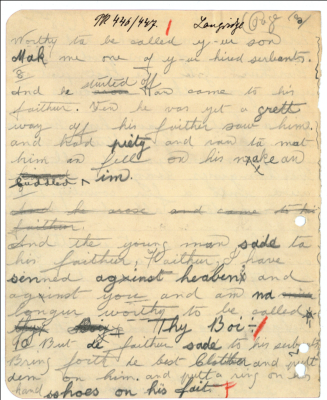 M 446/447. page 18/
Worthy to be called y-ur son
Mak me one of y-ur hired serbants.
8
And he started off an came to his
faither. Fen he was yet a grett
way off his faither saw him
and haed piety and ran ta mat
him an fell on his nake an
cuddled tim.
And he arose and came to his
faither.
And the young man sade ta
his faither, Faither I have
senned against heaben and
against you and am na
longer worthy to be called
Thy Boi
90 But de faither sade to his serbants
Bring forth he best Clother and putt
dem on him. and putt a ring on his
hand, shoes on his fait.